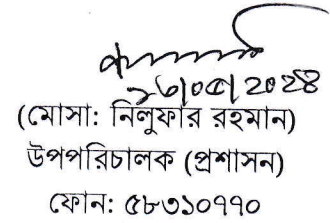 ২৬/০৫/২০২৪
(মোসা: নিলুফার রহমান)
উপপরিচালক (প্রশাসন)
ফোন: ৫৮৩১০৭৭০